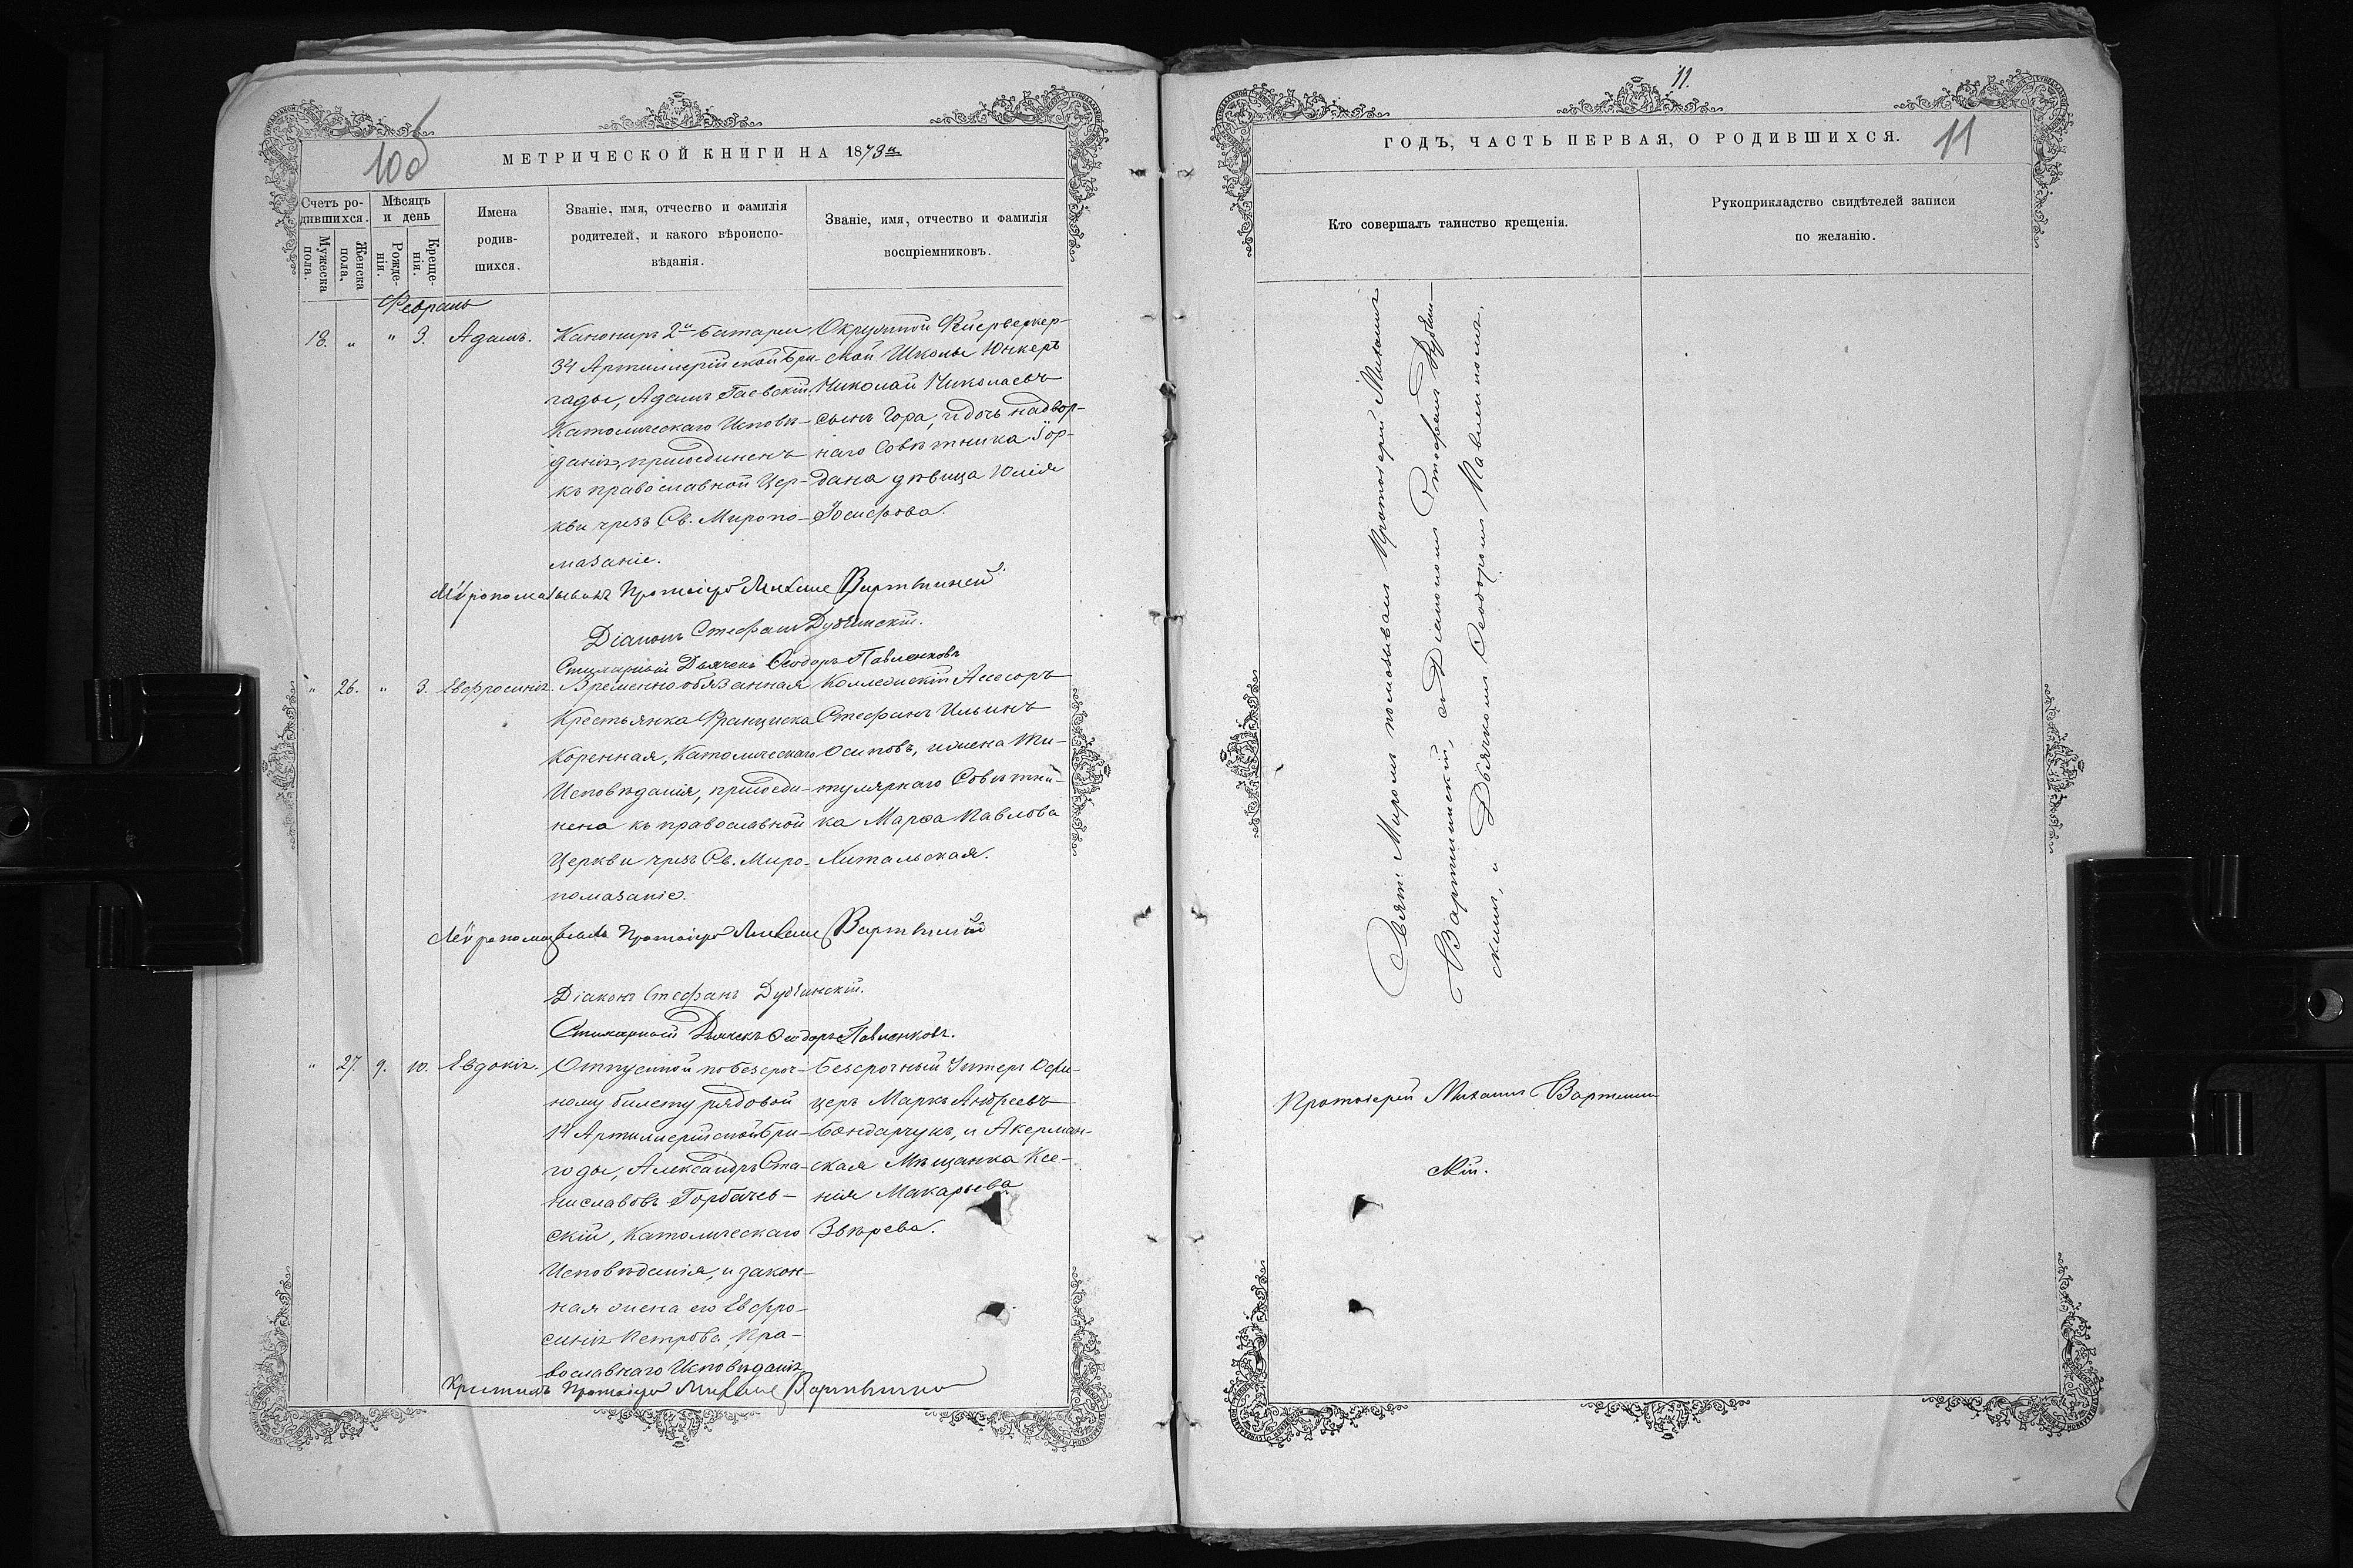 10об
МЕТРИЧЕСКОЙ КНИГИ НА 1873й
Счетъ ро-
дившихся.
Мужеска
пола.
Женска
пола.
Мѣсяцъ
и день
Рожде-
нія.
Креще-
нія.
Имена
родив-
шихся.
Званіе, имя, отчество и фамилія
родителей, и какого вѣроиспо-
вѣданія.
Званіе, имя, отчество и фамилія
воспріемниковъ.
Февраль
18. " " 3. Адамъ.
Канониръ 2й Батареи
34 Артиллерійской Бри-
гады, Адамъ Гаевскій,
Католическаго Исповѣ-
данія, присоединенъ
къ православной Цер-
кви чрезъ Св. Миропо-
мазаніе.
Окружной Фейерверкер-
ской Школы Юнкеръ
Николай Николаевъ
сынъ Гора, и дочь надвор-
наго Совѣтника Іор-
дана дѣвица Юлія
Іосифова.
Мѵропомазывалъ Протоіерей Михаилъ Вартминскій
Діаконъ Стефанъ Дубчинскій.
Стихарный Дьячекъ Ѳеодоръ Павленковъ
" 26. " 3. Евфросинія.
Временнообязанная
Крестьянка Франциска
Коренная, Католическаго
Исповѣданія, присоеди-
нена къ православной
Церкви чрезъ Св. Миро-
помазаніе.
Коллежскій Асесоръ
Стефанъ Ильинъ
Осиповъ, и жена Ти-
тулярнаго Совѣтни-
ка Марѳа Павлова
Хитальская.
Мѵропомазывалъ Протоіерей Михаилъ Вартминскій
Діаконъ Стефанъ Дубчинскій.
Стихарный Дьячекъ Ѳеодоръ Павленковъ.
" 27. 9. 10. Евдокія.
Отпускной по безсроч-
ному билету рядовой
14 Артиллерійской Бри-
гады, Александръ Ста-
ниславовъ Горбачев-
скій, Католическаго
Исповѣданія, и закон-
ная жена его Евфро-
синія Петрова, Пра-
вославнаго Исповѣданія
Безсрочный Унтеръ Офи-
церъ Маркъ Андреевъ
Бондарчукъ, и Акерман-
ская Мѣщанка Ксе-
нія Макарьева
Звѣрева.
Крестилъ Протоіерей Михаилъ Вартминскій
11.
ГОДЪ, ЧАСТЬ ПЕРВАЯ, О РОДИВШИХСЯ.
11
Кто совершалъ таинство крещенія.
Рукоприкладство свидѣтелей записи
по желанію.
Свят. Миромъ помазывалъ Протоіерей Михаилъ
Вартминскій, съ Діакономъ Стефаномъ Дубчин-
скимъ, и Дьячкомъ Ѳеодоромъ Павленковымъ.
Протоіерей Михаилъ Вартмин-
скій.